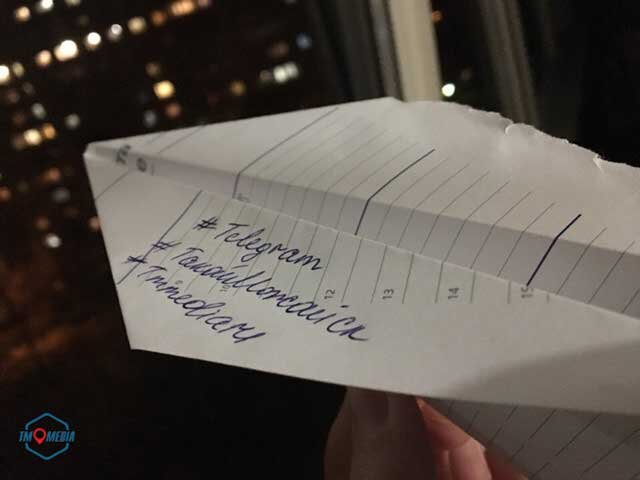 #Telegram
#ТакойМожайск
#Tmmediaru
12
13
14
15
TM MEDIA